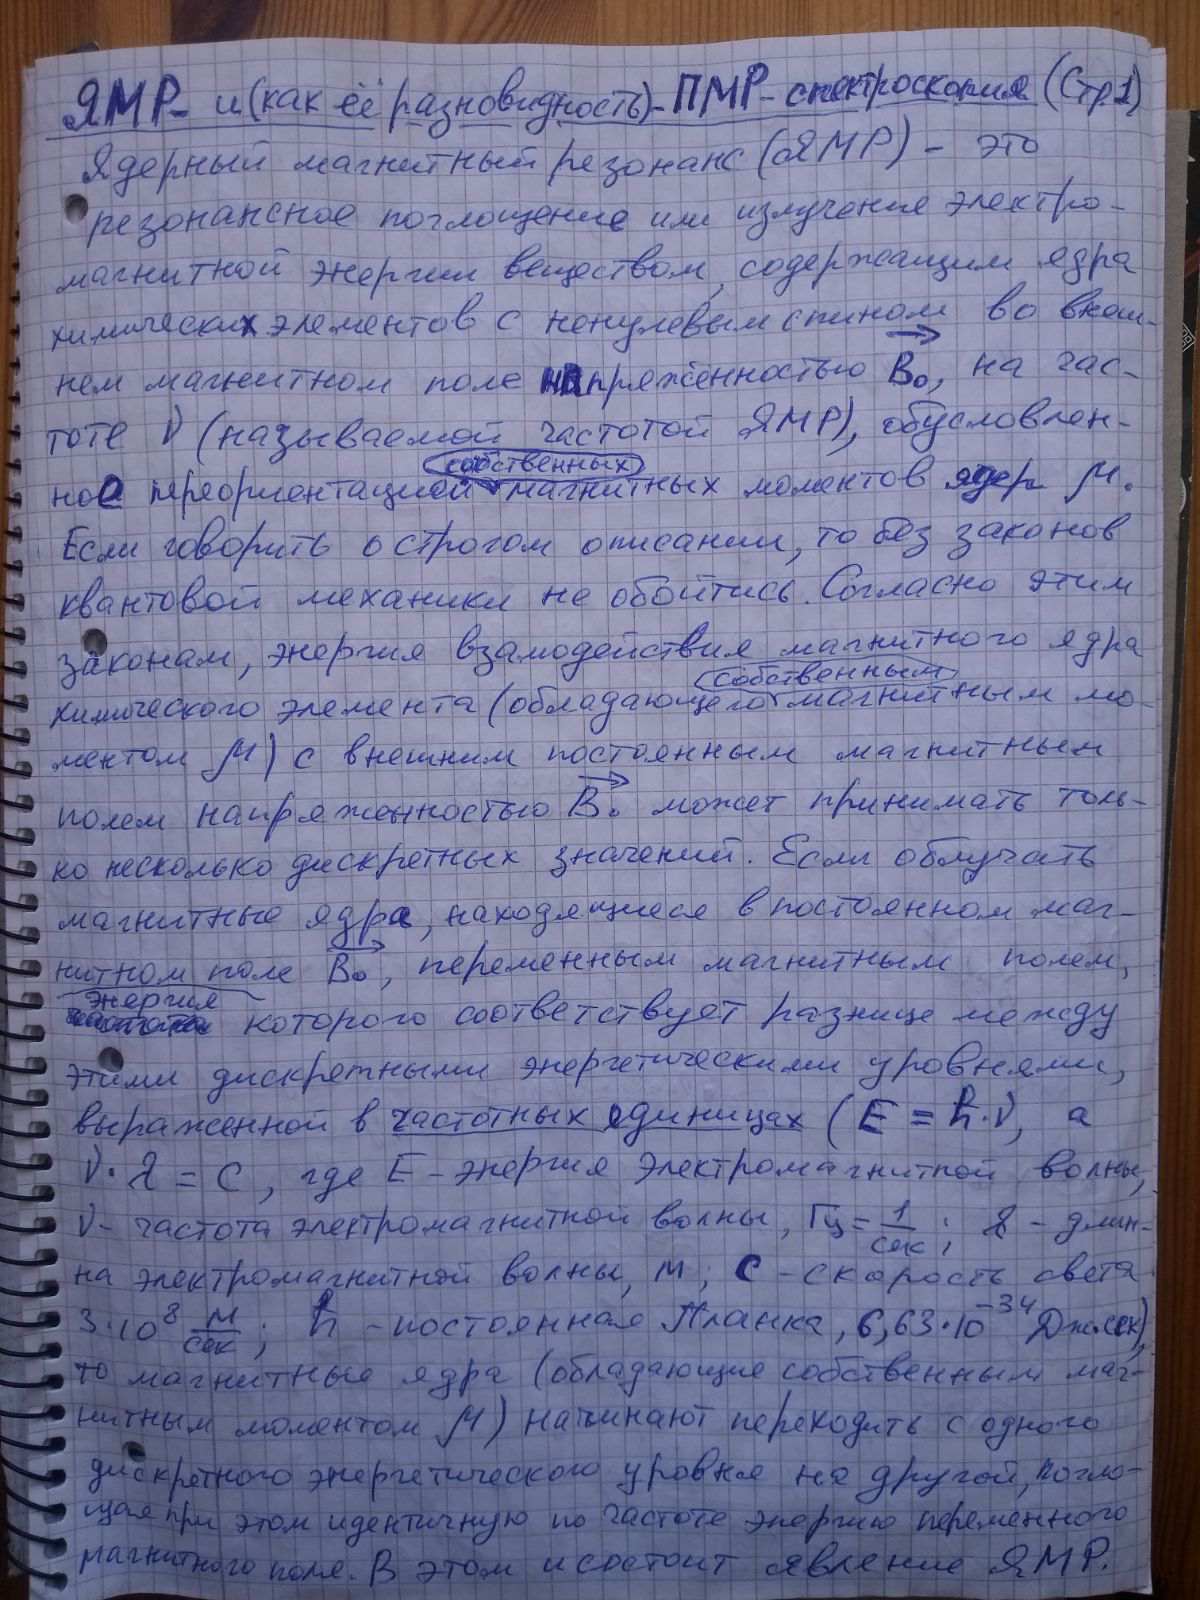 ЯМР- и (как её разновидность)- ПМР- спектроскопия (Стр1)
Ядерный магнитный резонанс (ЯМР) - это
резонансное поглощение или излучение электро-
магнитной энергии веществом, содержащим ядра
химических элементов с ненулевым спином во внеш-
нем магнитном поле напряжённостью B₀, на час-
тоте ν (называемой частотой ЯМР), обусловлен-
собственных
ное переориентацией магнитных моментов ядер μ.
Если говорить о строгом описании, то без законов
квантовой механики не обойтись. Согласно этим
законам, энергия взамодействия магнитного ядра
собственным
химического элемента (обладающего магнитным мо-
ментом μ) с внешним постоянным магнитным
полем напряженностью B₀ может принимать толь-
ко несколько дискретных значений. Если облучать
магнитные ядра, находящиеся в постоянном маг-
нитном поле B₀, переменным магнитным полем,
энергия
которого соответствует разнице между
этими дискретными энергетическими уровнями,
выраженной в частотных единицах (E = h·ν, а
ν·λ = c, где E - энергия электромагнитной волны,
ν - частота электромагнитной волны, Гц = 1/сек; λ - длин-
на электромагнитной волны, м; c - скорость света
3·10⁸ м/сек; h - постоянная Планка, 6,63·10⁻³⁴ Дж·сек),
то магнитные ядра (обладающие собственным маг-
нитным моментом μ) начинают переходить с одного
дискретного энергетического уровня на другой, погло-
щая при этом идентичную по частоте энергию переменного
магнитного поля. В этом и состоит явление ЯМР.